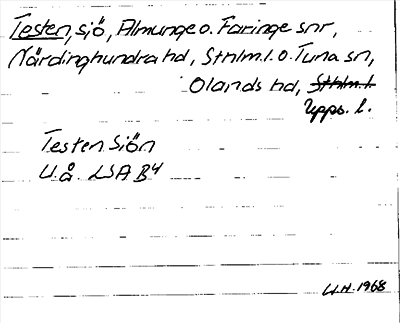 Testen, sjö, Almunge o. Faringe snr,
Närdinghundra hd, Sthlm.l. o. Tuna sn,
Olands hd, Sthlm.l.
Upps. l.
Testen Siön
U.å. LSA B4
U.H. 1968